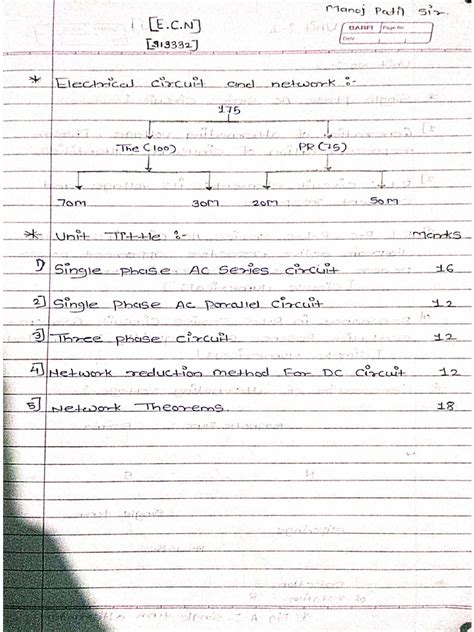 Manoj Patil Sir.
[E.C.N]
[313332]
Page No.
Date
* Electrical circuit and network :-
175
The (100) PR (75)
70M 30M 20M 50M
* Unit Tittle :- Marks
1) Single phase AC Series circuit 16
2] Single Phase AC Parallel Circuit 12
3] Three phase circuit 12
4] Network reduction method For DC Circuit 12
5] Network Theorems. 18